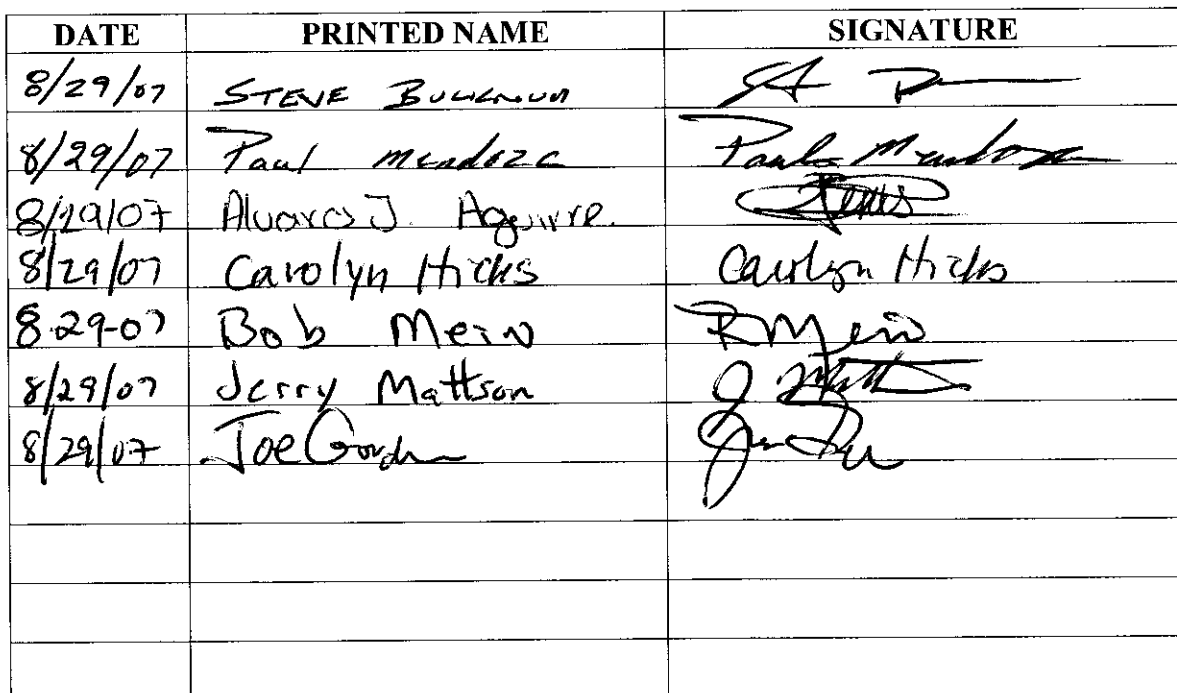 DATE PRINTED NAME SIGNATURE
8/29/07 STEVE
8/29/07 Paul Mendoza Paul Mendoza
8/29/07 Alvaro J. Aguirre.
8/29/07 Carolyn Hicks Carolyn Hicks
8-29-07 Bob Mein R Mein
8/29/07 Jerry Mattson J Matt
8/29/07 Joe Gordon